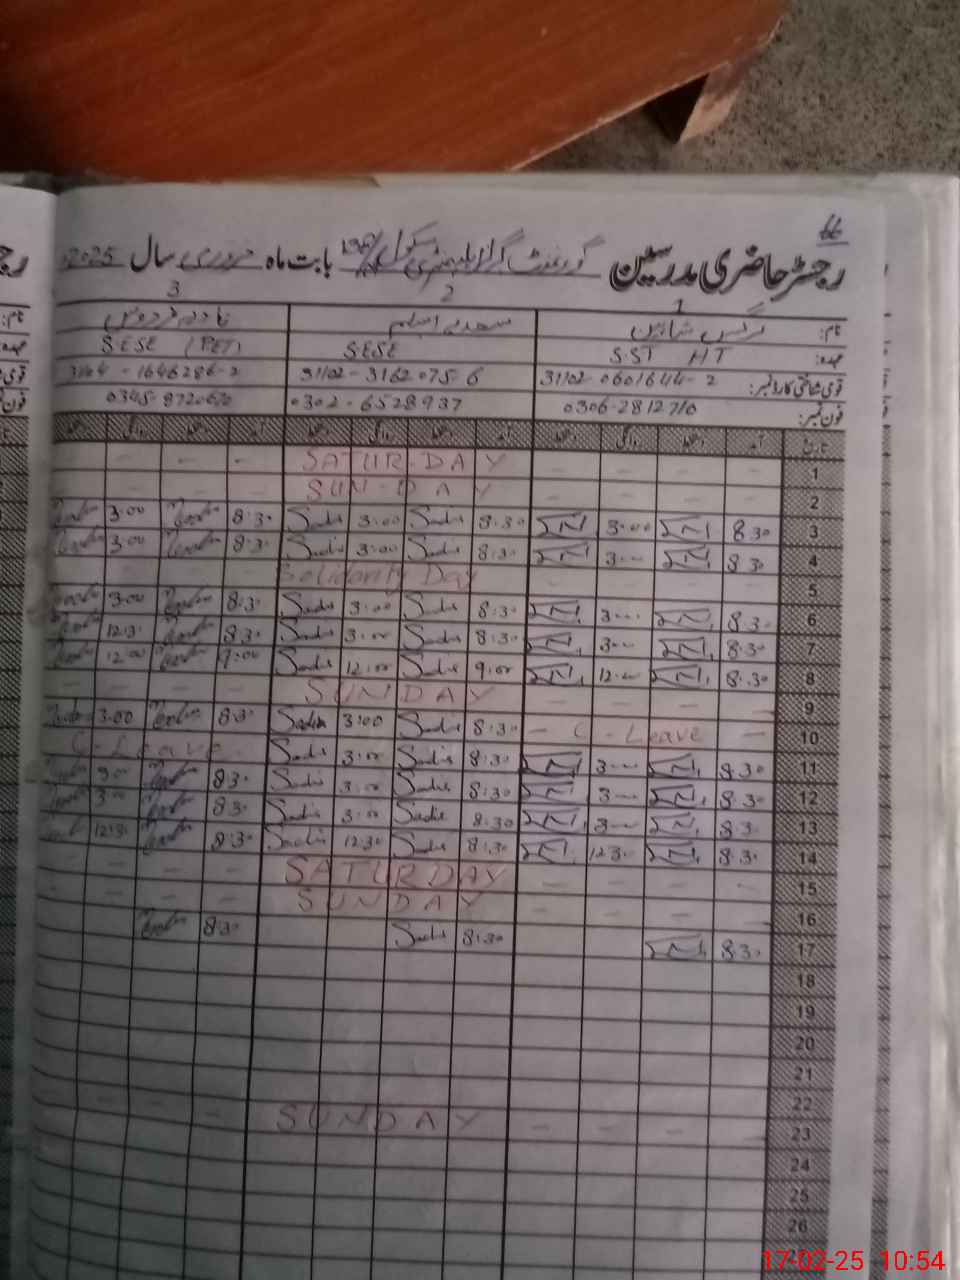 66
رجسٹر حاضری مدرسین گورنمنٹ گرلز ایلیمنٹری سکول بابت ماہ فروری سال 2025
1 2 3
نام: نرگس شاہین سعدیہ اسلم نادیہ فردوس
عہدہ: SST HT SESE SESE (PET)
قومی شناختی کارڈ نمبر: 31102-0601644-2 31102-3162075-6 -1646286-2
فون نمبر: 0306-2812710 0302-6528937 0345-8720670
تاریخ آمد دستخط روانگی دستخط آمد دستخط روانگی دستخط آمد دستخط روانگی دستخط
1 SATUR-DAY
2 SUN-DAY
3 8.30 3.00 8.30 Sadia 3.00 Sadia 8.30 3.00
4 8.30 3.00 8.30 Sadia 3.00 Sadia 8.30 3.00
5 Solidarity Day
6 8.30 3.00 8.30 Sadia 3.00 Sadia 8.30 3.00
7 8.30 3.00 8.30 Sadia 3.00 Sadia 8.30 12.30
8 8.30 12.00 9.00 Sadia 12.00 Sadia 9.00 12.00
9 SUNDAY
10 C-Leave 8.30 Sadia 3.00 Sadia 8.30 3.00
11 8.30 3.00 8.30 Sadia 3.00 Sadia C-Leave
12 8.30 3.00 8.30 Sadia 3.00 Sadia 8.30 3.00
13 8.30 3.00 8.30 Sadia 3.00 Sadia 8.30 3.00
14 8.30 12.30 8.30 Sadia 12.30 Sadia 8.30 12.30
15 SATURDAY
16 SUNDAY
17 8.30 8.30 Sadia 8.30
18
19
20
21
22
23 SUNDAY
24
25
26
17-02-25 10:54